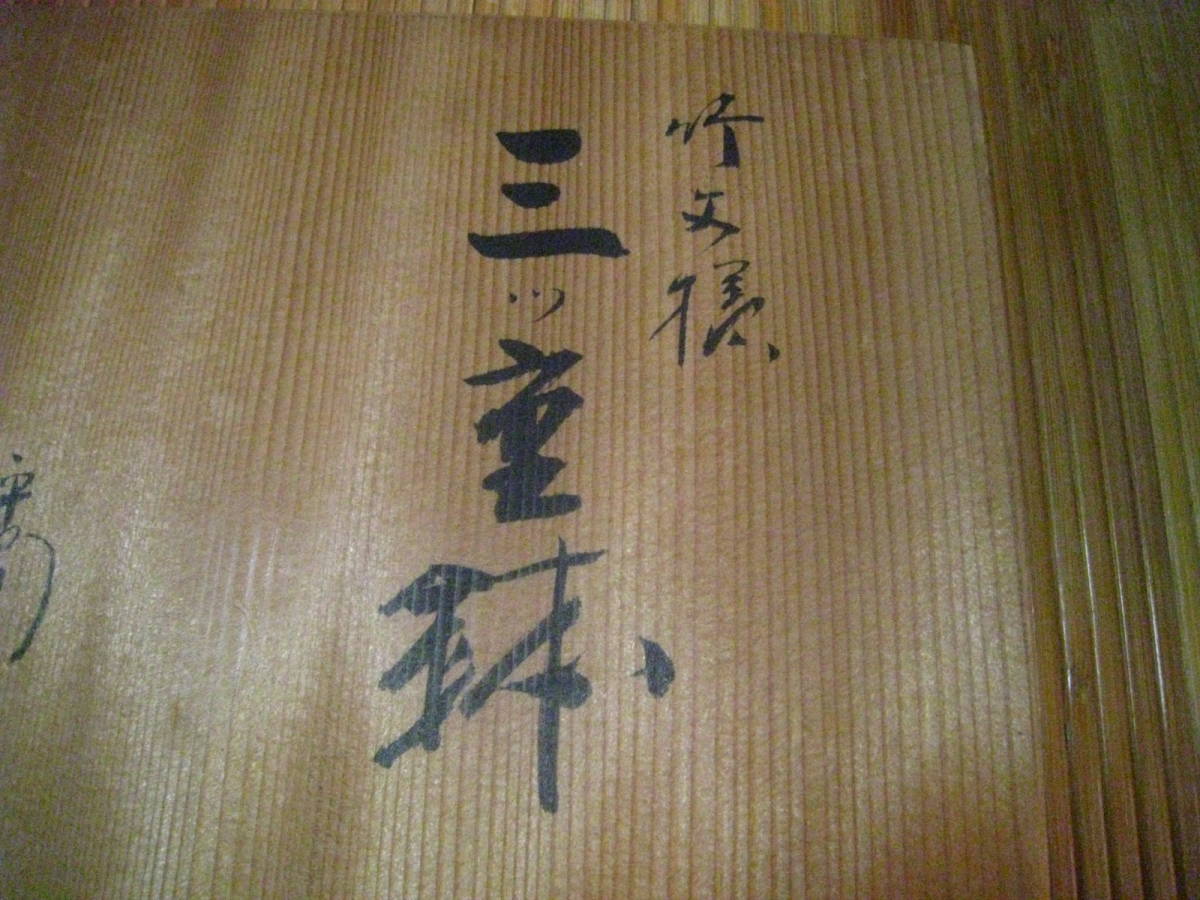 竹文様
三ッ重鉢